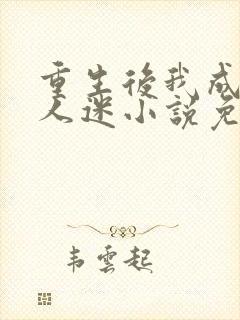 重生後我成
人迷小說免
韦雲起